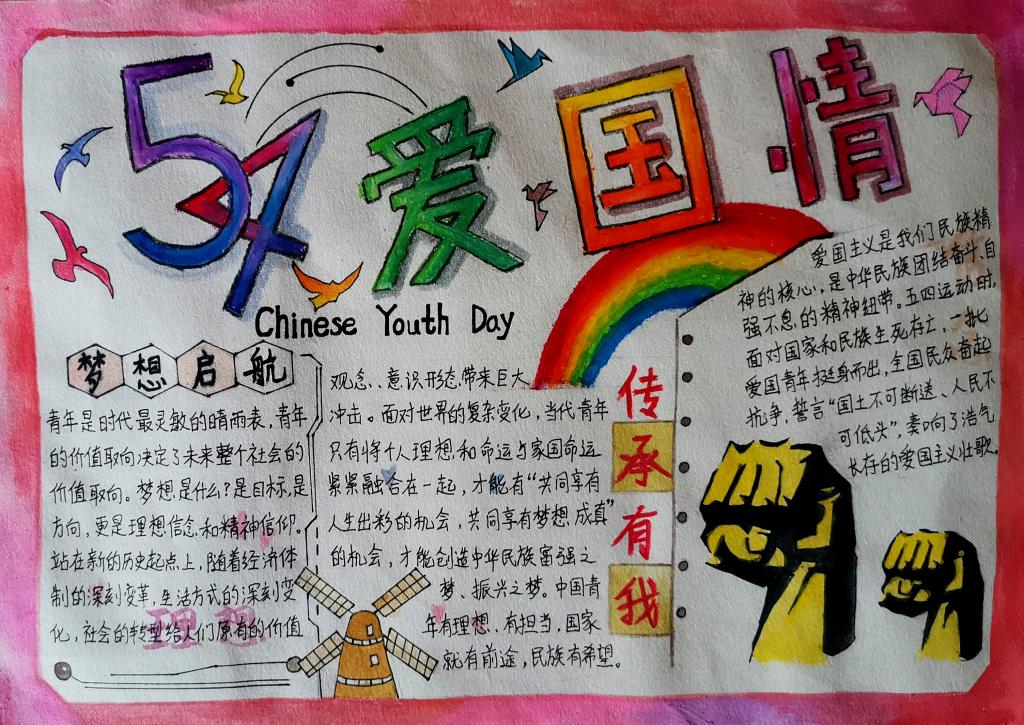 54爱国情
Chinese Youth Day
梦想启航
青年是时代最灵敏的晴雨表，青年
的价值取向决定了未来整个社会的
价值取向。梦想是什么？是目标，是
方向，更是理想信念和精神信仰。
站在新的历史起点上，随着经济体
制的深刻变革，生活方式的深刻变
化，社会的转型给人们原有的价值
理想
观念、意识形态带来巨大
冲击。面对世界的复杂变化，当代青年
只有将个人理想和命运与家国命运
紧紧融合在一起，才能有“共同享有
人生出彩的机会，共同享有梦想成真”
的机会，才能创造中华民族富强之
梦、振兴之梦。中国青
年有理想、有担当，国家
就有前途，民族有希望。
传
承
有
我
爱国主义是我们民族精
神的核心，是中华民族团结奋斗、自
强不息的精神纽带。五四运动时，
面对国家和民族生死存亡，一批
爱国青年挺身而出，全国民众奋起
抗争，誓言“国土不可断送、人民不
可低头”，奏响了浩气
长存的爱国主义壮歌。